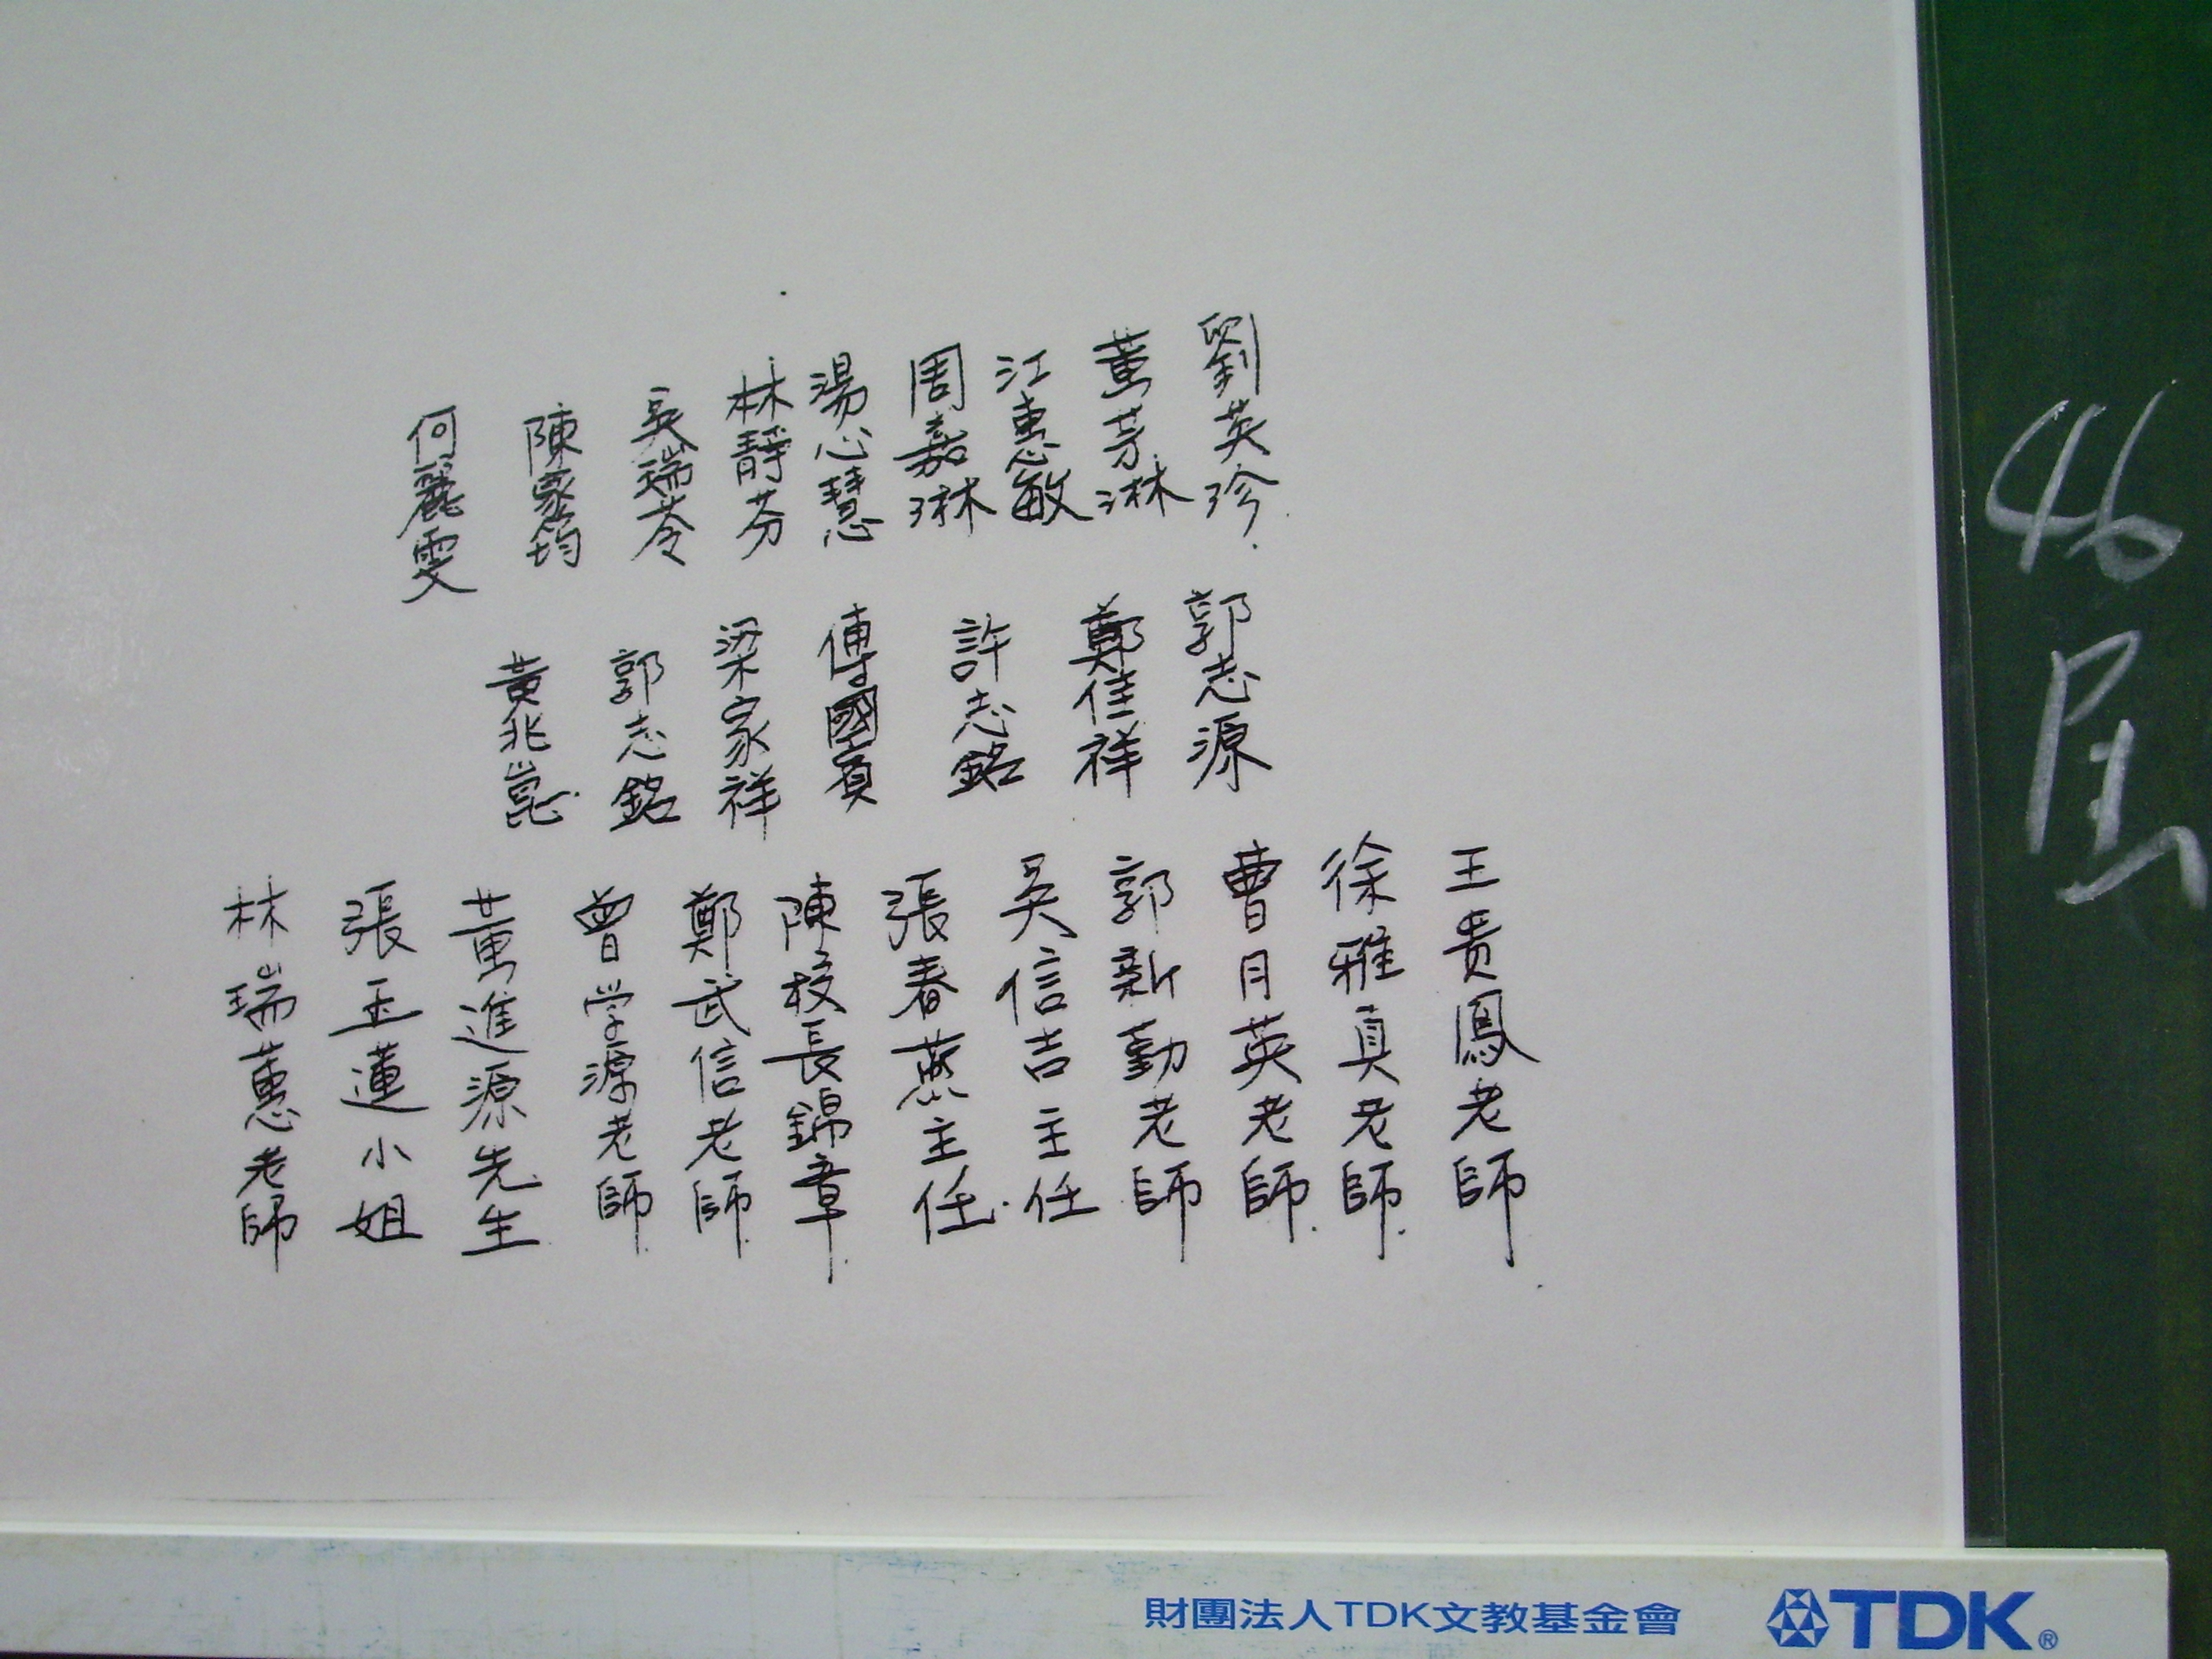 劉英珍
董芳淋
江惠敏
周嘉琳
湯心慧
林靜芬
吳瑞苓
陳家筠
何麗雯
郭志源
鄭佳祥
許志銘
傅國賓
梁家祥
郭志銘
黃兆崑
王貴鳳老師
徐雅真老師
曹月英老師
郭新勤老師
吳信吉主任
張春燕主任
陳校長錦章
鄭武信老師
曾学源老師
董進源先生
張玉蓮小姐
林瑞蕙老師
46屆
財團法人TDK文教基金會
TDK®